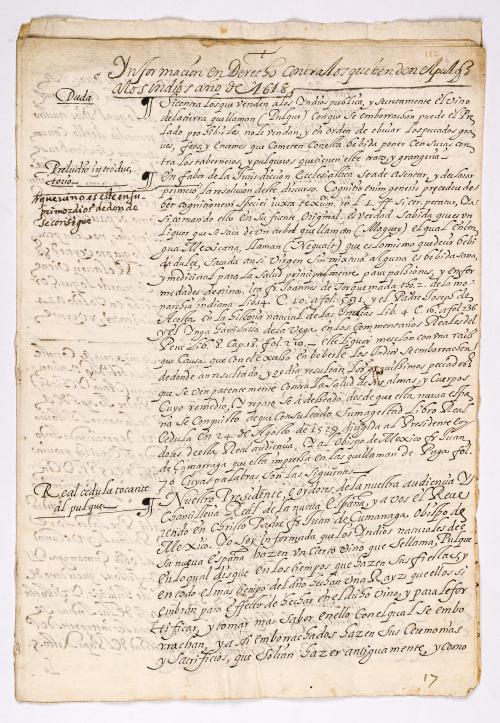 112
Ynformación en Derecho contra los que benden el pulq̃
a los Indios año de 1618
Duda
¶ Si contra los que venden a los Yndios publica, y secretamente el vino
de la tierra que llaman (Pulque) Con que se emborrachan puede el Pre
lado prohibirles no le vendan, y en orden de obviar los pecados gra
ves, feos, y enormes que Cometen Con esta bebida poner Censuras con
tra los taberneros, y pulqueros que tienen este trato, y grangeria
Preludio introduc
torio
¶ En fabor de la Jurisdiccion Ecclesiastica se a de asentar, y declarar
primero la resolucion de este discurso. Cognitio enim generis precedere de
bet cognitionem speciei iuxta textum in L. 1. ff. Si cer. petatur, Da
Si tomando ello En su fuente Original. La verdad Sabida que es un
Liquor que se saca de Un arbol que llaman (Maguey) el qual En len
gua Mexicana, llaman (Neqȗtl) que es lo mismo que decir bebi
da dulce, Sacada ansi Virgen Sin mixtura alguna es bebida Sana,
y medicinal para la Salud principalmente para passiones, y enfer
medades de orina, ita fr. Joannes de Torquemada tbo. 2. de la mo
narchia indiana Lib. 4 C. 10. a fol. 591. y el Padre Joseph de
Acosta en la historia natural de las Yndias Lib. 4 C. 16. a fol. 236
y el Ynga Garcilaso de la Vega en los Commentarios Reales del
Peru Lib. 8. Cap. 13. fol. 210.— este liquor mesclan con una raiz
que Causa que con el exceso en beberle los Yndios Se emborrachen
de donde an resultado, y resultan los gravissimos peccados
que se ven patentemente Contra la Salud de sus almas, y Cuerpos
Cuyo remedio, y reparo se a deseado, desde que esta nueva espa
ña se Conquisto de que Consultado Su magestad Libro Real
Cedula En 24 de Agosto de 1529 dirigida al Presidente e oy
dores de esta Real audiencia, y al Obispo de Mexico fr. Juan
de Cumarraga que esta impresa en las que llaman de Puga fol.
70 Cuyas palabras Son las Siguientes—
Real cedula tocante
al pulque
¶ Nuestro Presidente, e Oydores de la nuestra audiencia Y
Chancilleria Real de la nueva España, y a vos el Reve
rendo en Christo Padre fr. Juan de Cumarraga Obispo de
Mexico. Yo soy informada que los Yndios naturales de
Sa nueva España hazen un Cierto vino que se llama, Pulque
en lo qual dis que en los tiempos que hazen Sus fiestas, y
en todo el mas tiempo del año hechan Una Rayz que ellos si
embran para Effecto de hechar en el dicho vino, y para le for
tificar, y tomar mas Sabor en ello Con el qual Se embo
rrachan, y a si emborrachados hazen Sus Ceremonias
y Sacrificios, que Solian hazer antiguamente, y como
17